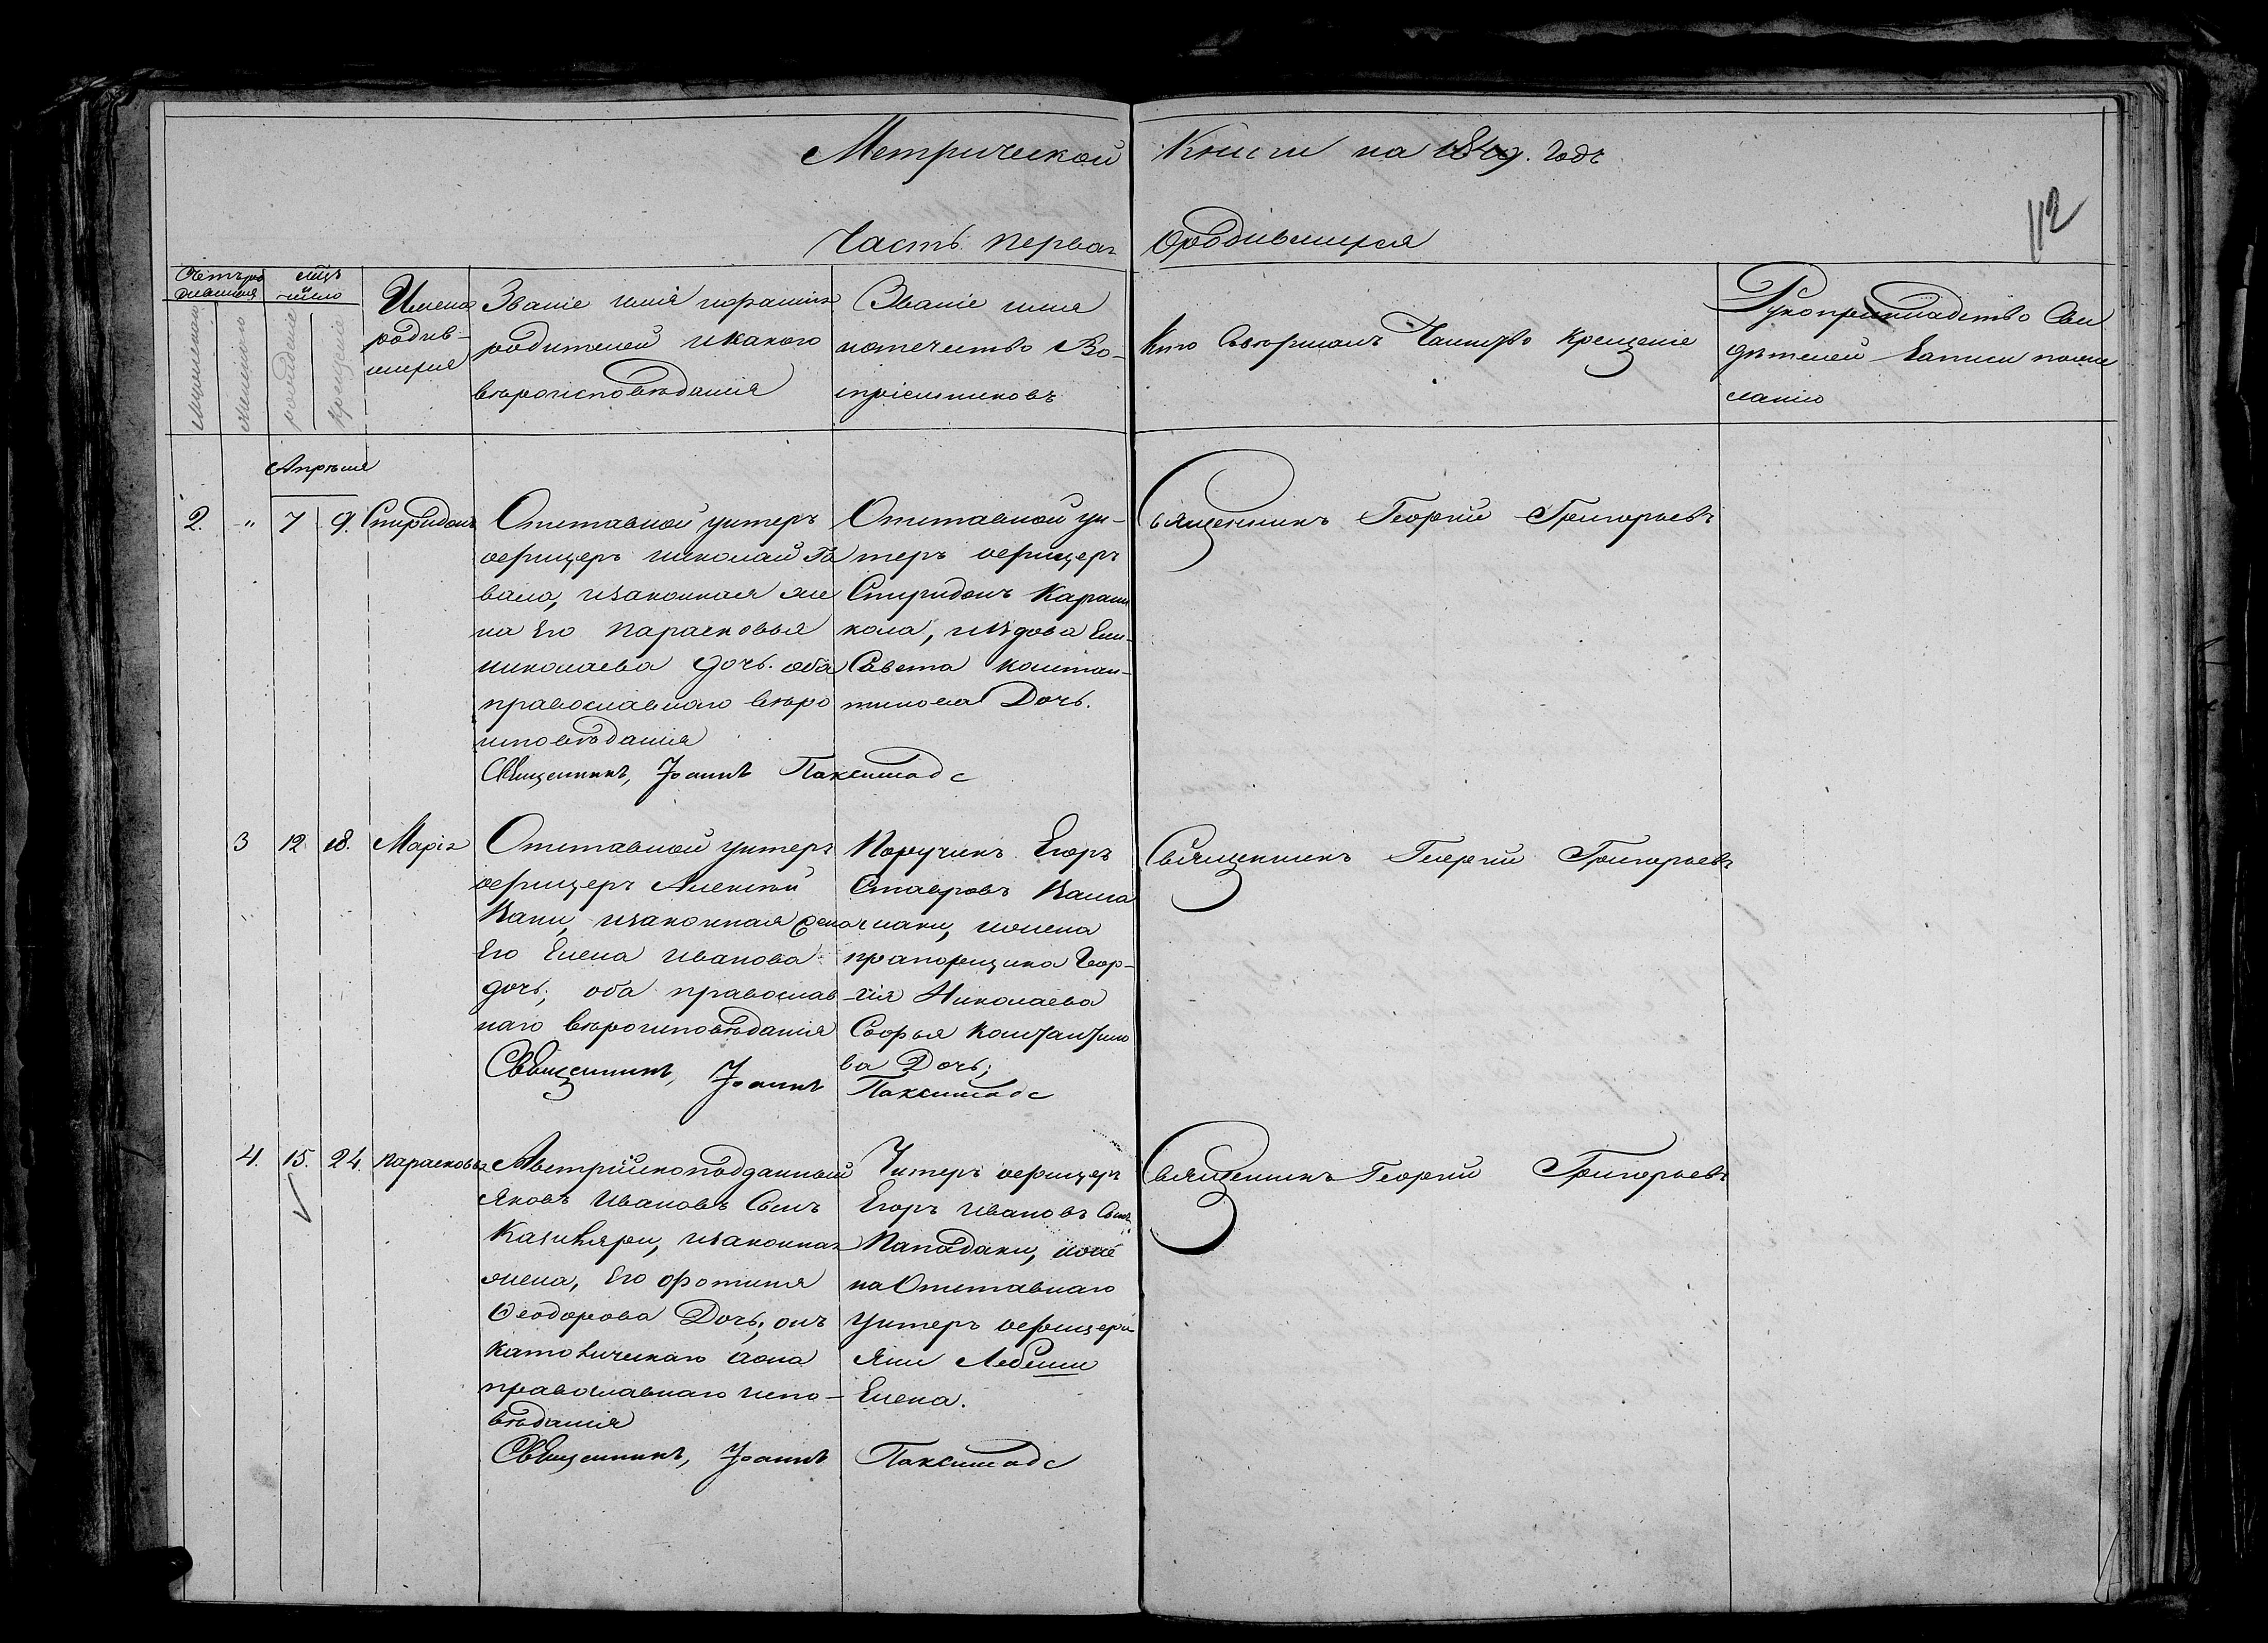 Метрической Книги на 1849. годъ
112
Часть первая о родившихся
Счетъ ро
дившихся
мѣц
и число
мужескаго
женскаго
рожденіе
крещеніе
Имена
родив-
шихся
Званіе имя и фамилія
родителей и какого
вѣроисповѣданія
Званіе имя
и отечество Во-
спріемниковъ
Кто Совершалъ Таинство крещеніе
Рукоприкладство Сви
дѣтелей записи по же
ланію
Апрѣля
2. " 7 9. Спиридонъ
Отставной унтеръ
офицеръ Николай Га
вала, и законная же
на Его Парасковья
Николаева дочь. оба
православнаго вѣро
исповѣданія
Священникъ, Іоаннъ Паксимадс
Отставной ун-
теръ офицеръ
Спиридонъ
кола, и вдова Ели-
Савета констан-
тинова Дочь.
Священникъ Георгій Григорьевъ
3 12 18. Марія
Отставной унтеръ
офицеръ Алексѣй
Каки, и законная жена
Его Елена Иванова
дочь; оба православ
наго вѣроисповѣданія
Священникъ, Іоаннъ Паксимадс
Поручикъ Егоръ
Ставровъ
и жена
прапорщика Геор-
гія Николаева
Софья Константино
ва Дочь;
Священникъ Георгій Григорьевъ
4. 15. 24. Парасковья
Австрійскоподданный
Яковъ Ивановъ Сынъ
и законная
жена, Его Фотинія
Ѳеодорова Дочь; онъ
католическаго а она
православнаго испо-
вѣданія
Священникъ, Іоаннъ Паксимадс
Унтеръ офицеръ
Егоръ Ивановъ Сынъ
Пападаки, и же
на Отставнаго
Унтеръ офицера
Яни
Елена.
Священникъ Георгій Григорьевъ